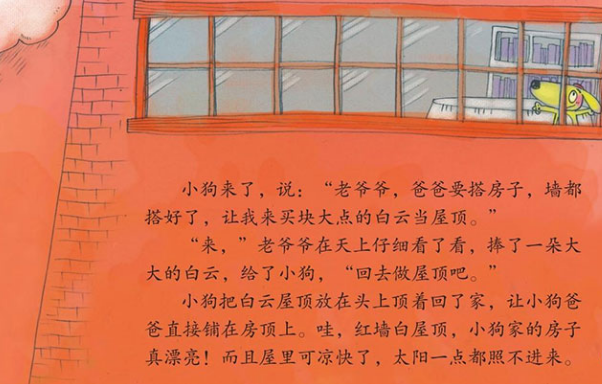 小狗来了，说：“老爷爷，爸爸要搭房子，墙都
搭好了，让我来买块大点的白云当屋顶。”
“来，”老爷爷在天上仔细看了看，捧了一朵大
大的白云，给了小狗，“回去做屋顶吧。”
小狗把白云屋顶放在头上顶着回了家，让小狗爸
爸直接铺在房顶上。哇，红墙白屋顶，小狗家的房子
真漂亮！而且屋里可凉快了，太阳一点都照不进来。